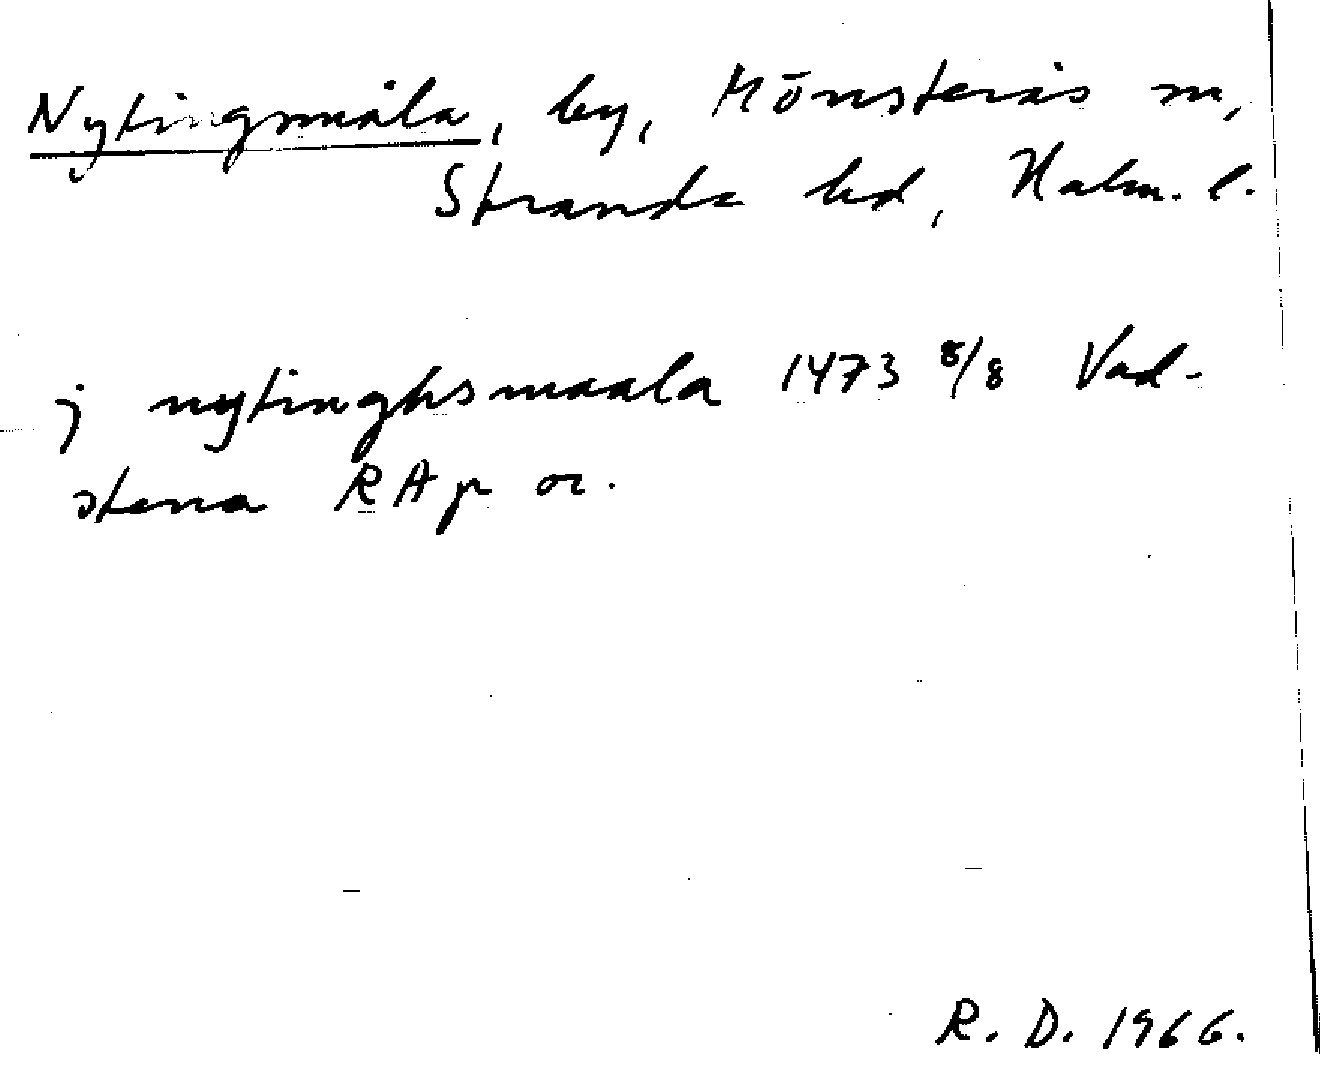 Nytingsmåla, by, Mönsterås sn,
Stranda hd, Kalm. l.
j nytinghsmaala 1473 8/8 Vad-
stena RAp or.
R. D. 1966.